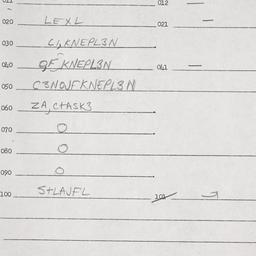 011 012 —
020 LEXL 021 —
030 C4,KNEPL3N
040 9F,KNEPL3N 041 —
050 C3NOJFKNEPL3N
060 ZA,C+ASK3
070 O
080 O
090 O
100 S+LAJFL 101